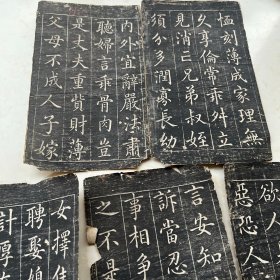 恤刻薄成家理無
久享倫常乖舛立
見消亡兄弟叔姪
須分多潤寡長幼
內外宜辭嚴法肅
聽婦言乖骨肉豈
是丈夫重貲財薄
父母不成人子嫁
女擇佳
聘娶媳
計厚
言安知
訴當忍
爭相爭
之不是
欲人
惡恐人